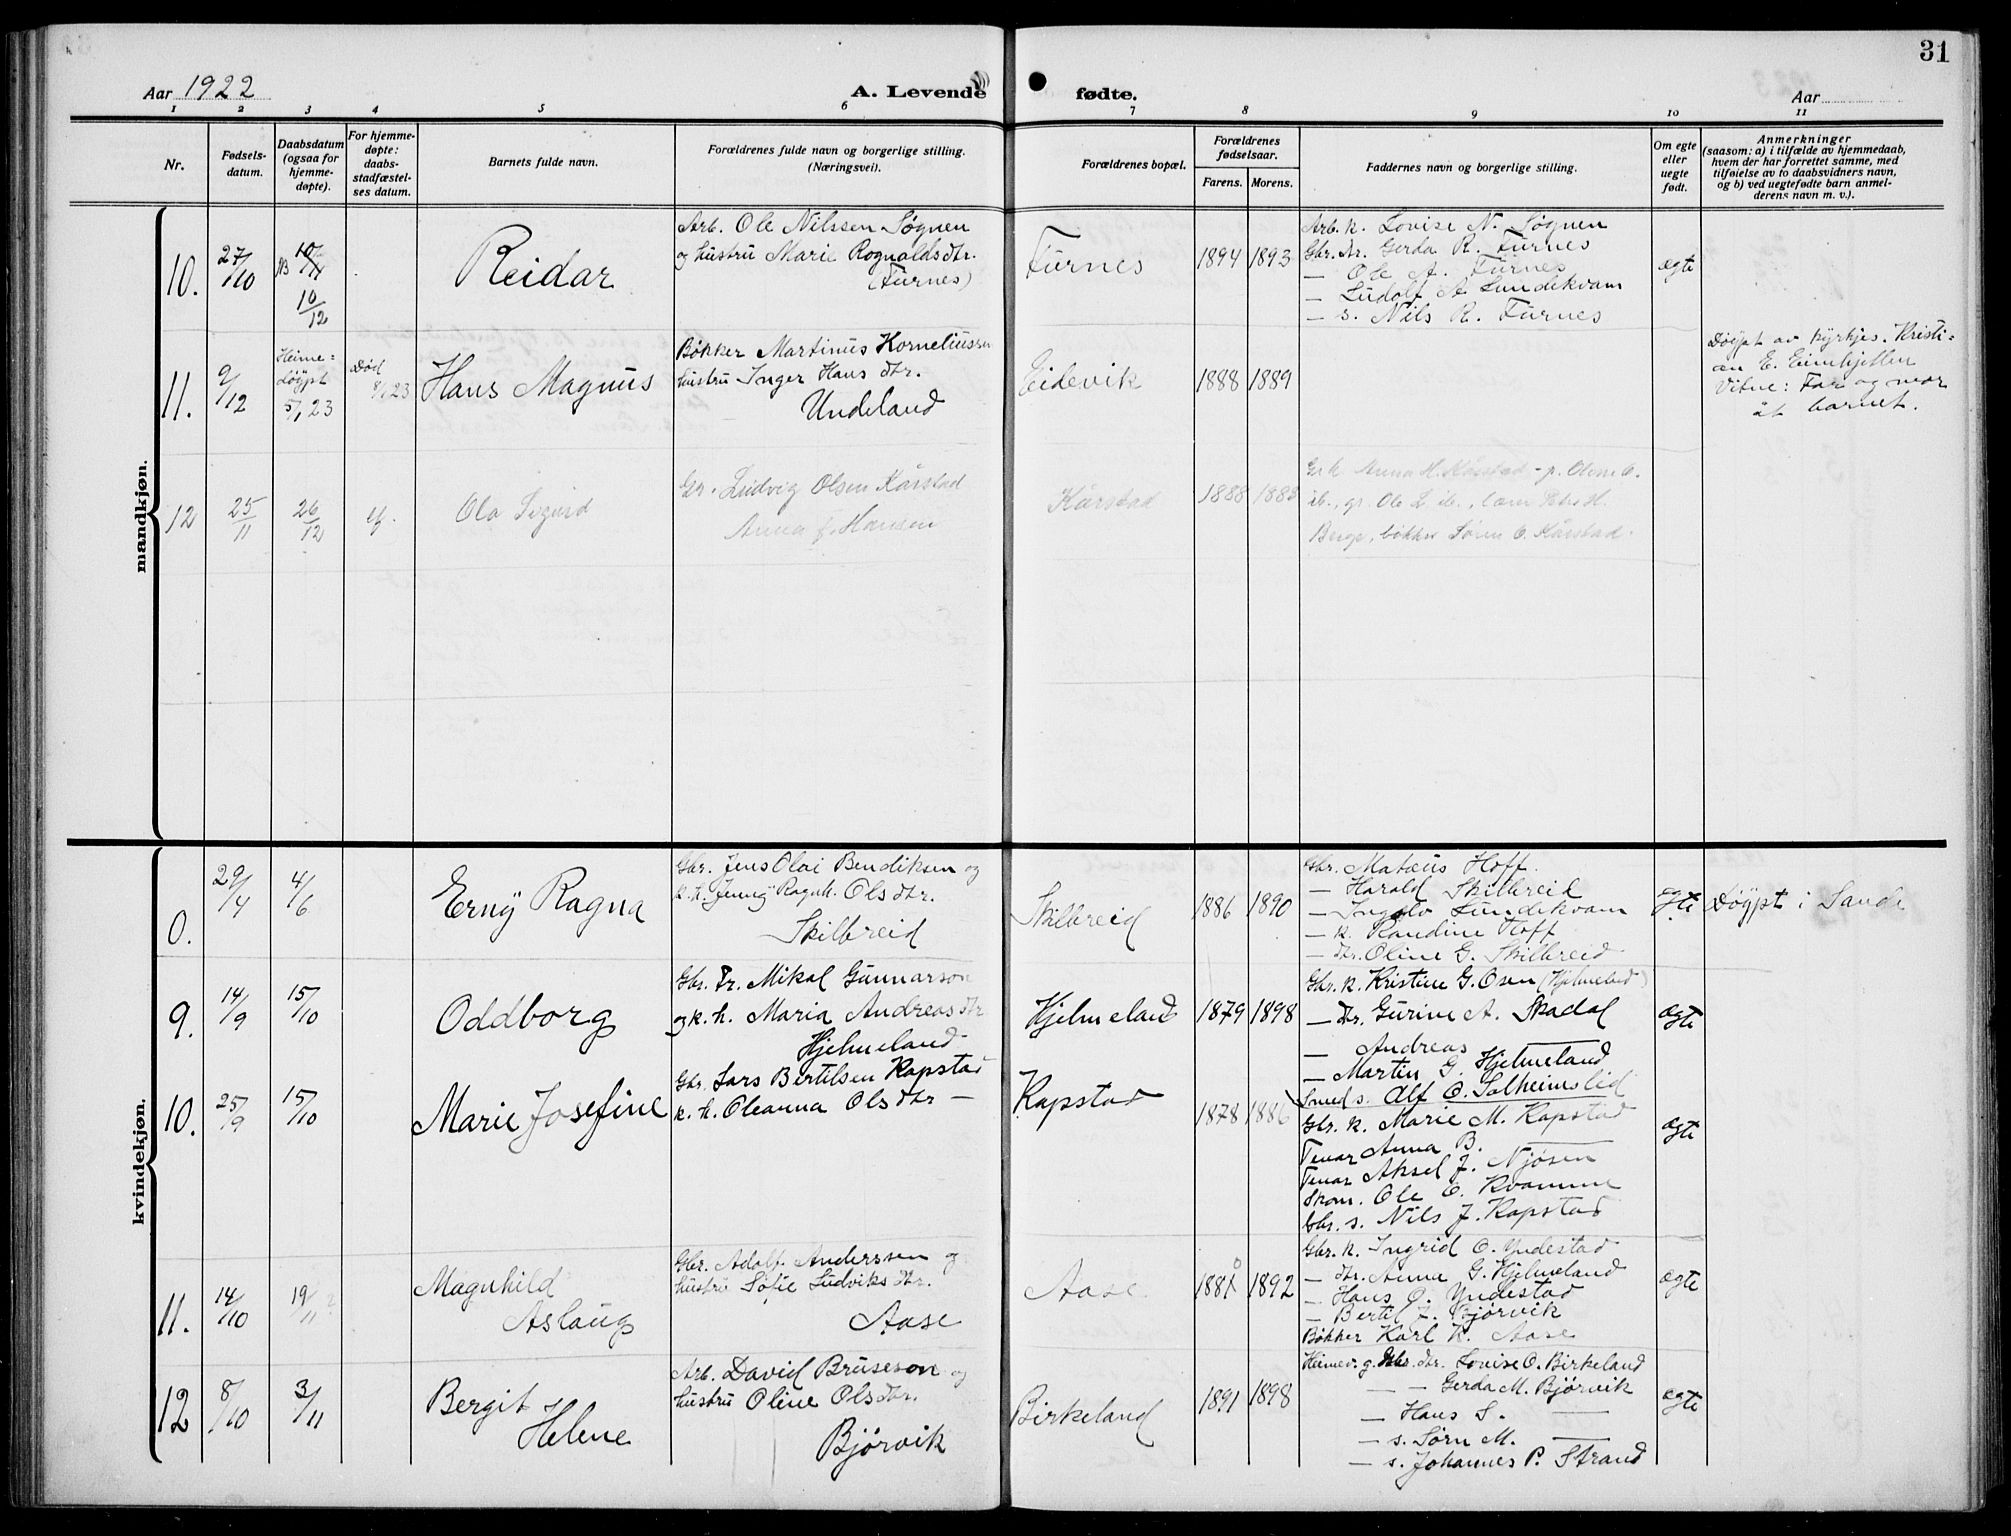 31
Aar 1922
A. Levende fødte.
Aar
1 2 3 4 5 6 7 8 9 10 11
Nr.
Fødsels-
datum.
Daabsdatum
(ogsaa for
hjemme-
døpte).
For hjemme-
døpte:
daabs-
stadfæstel-
ses datum.
Barnets fulde navn.
Forældrenes fulde navn og borgerlige stilling.
(Næringsvei).
Forældrenes bopæl.
Forældrenes
fødselsaar.
Farens. Morens.
Faddernes navn og borgerlige stilling.
Om egte
eller
uegte
født.
Anmerkninger
(saasom: a) i tilfælde av hjemmedaab,
hvem der har forrettet samme, med
tilføielse av to daabsvidners navn,
og b) ved uegtefødte barn anmel-
derens navn m. v.).
mandkjøn.
10.
27/10
10/12
Reidar
Arb. Ole Nilssen Søgnen
og hustru Marie Rognaldsdtr.
(Furnes)
Furnes
1894 1893
Arb. k. Lovise N. Søgnen
Gbr. dr. Gerda R. Furnes
— Ole A. Furnes
— Ludolf A. Lundekvam
— s. Nils R. Furnes
ægte
11.
9/12
Heime-
døypt
5/1 23
Død
8/1 23
Hans Magnus
Bøkker Martinus Korneliussen
hustru Inger Hans dtr.
Undeland
Eidevik
1888 1889
Døypt av kyrkjes. Kristi-
an E. Eimhjellen
Vitne: Far og mor
åt barnet.
12
25/11
26/12
Ola Sigurd
Gr. Ludvig Olsen Kårstad
Anna f. Hansen
Kårstad
1888 1888
Grk. Anna H. Kårstad - p. Oline O.
ib., gr. Ole L. ib.,
Berge, bøkker Søren O. Kårstad.
kvindekjøn.
0.
29/4
4/6
Erny Ragna
Gbr. Jens Olai Bendiksen og
k. h. Jenny Ragnh. Olsdtr.
Skilbreid
Skilbreid
1886 1890
Gbr. Mateus Hoff.
— Harald Skilbreid
— Ingolv Lundekvam
— k. Randine Hoff
— dtr. Oline G. Skilbreid
egte
Døypt i Sande
9.
14/9
15/10
Oddborg
Gbr. Fr. Mikal Gunnarson
og k. h. Maria Andreasdtr
Hjelmeland
Hjelmeland
1879 1898
Gbr. k. Kristine G. Osen (Hjelmeland)
— dtr. Gurine A. Skadal
— Andreas —
— Martin G. Hjelmeland
Smed s. Alf O. Solheimslid
ægte
10.
25/9
15/10
Marie Josefine
Gbr. Lars Bertilsen Kapstad
k. h. Oleanna Olsdtr —
Kapstad
1878 1886
Gbr. k. Marie M. Kapstad
Tenar Anna B. —
Tenar Aksel J. Njøsen
Skom. Ole O. Kvamme
Gbr. s. Nils J. Kapstad
ægte
11.
14/10
19/11
Magnhild
Aslaug
Gbr. Adolf Anderssen og
hustru Sofie Ludviksdtr.
Aase
Aase
1881 1892
Gbr. k. Ingrid O. Yndestad
— dtr. Anna G. Hjelmeland
— Hans O. Yndestad
— Bertil J. Bjørvik
Bøkker Karl K. Aase
ægte
12
8/10
3/11
Bergit
Helene
Arb. David Bruseson og
hustru Oline Olsdtr.
Bjørvik
Birkeland
1891 1898
Heimev. g. Gbr. dtr. Lovise O. Birkeland
— — Gerda M. Bjørvik
— Hans S. —
— s. Sørn M. —
— s. Johannes P. Strand
ægte